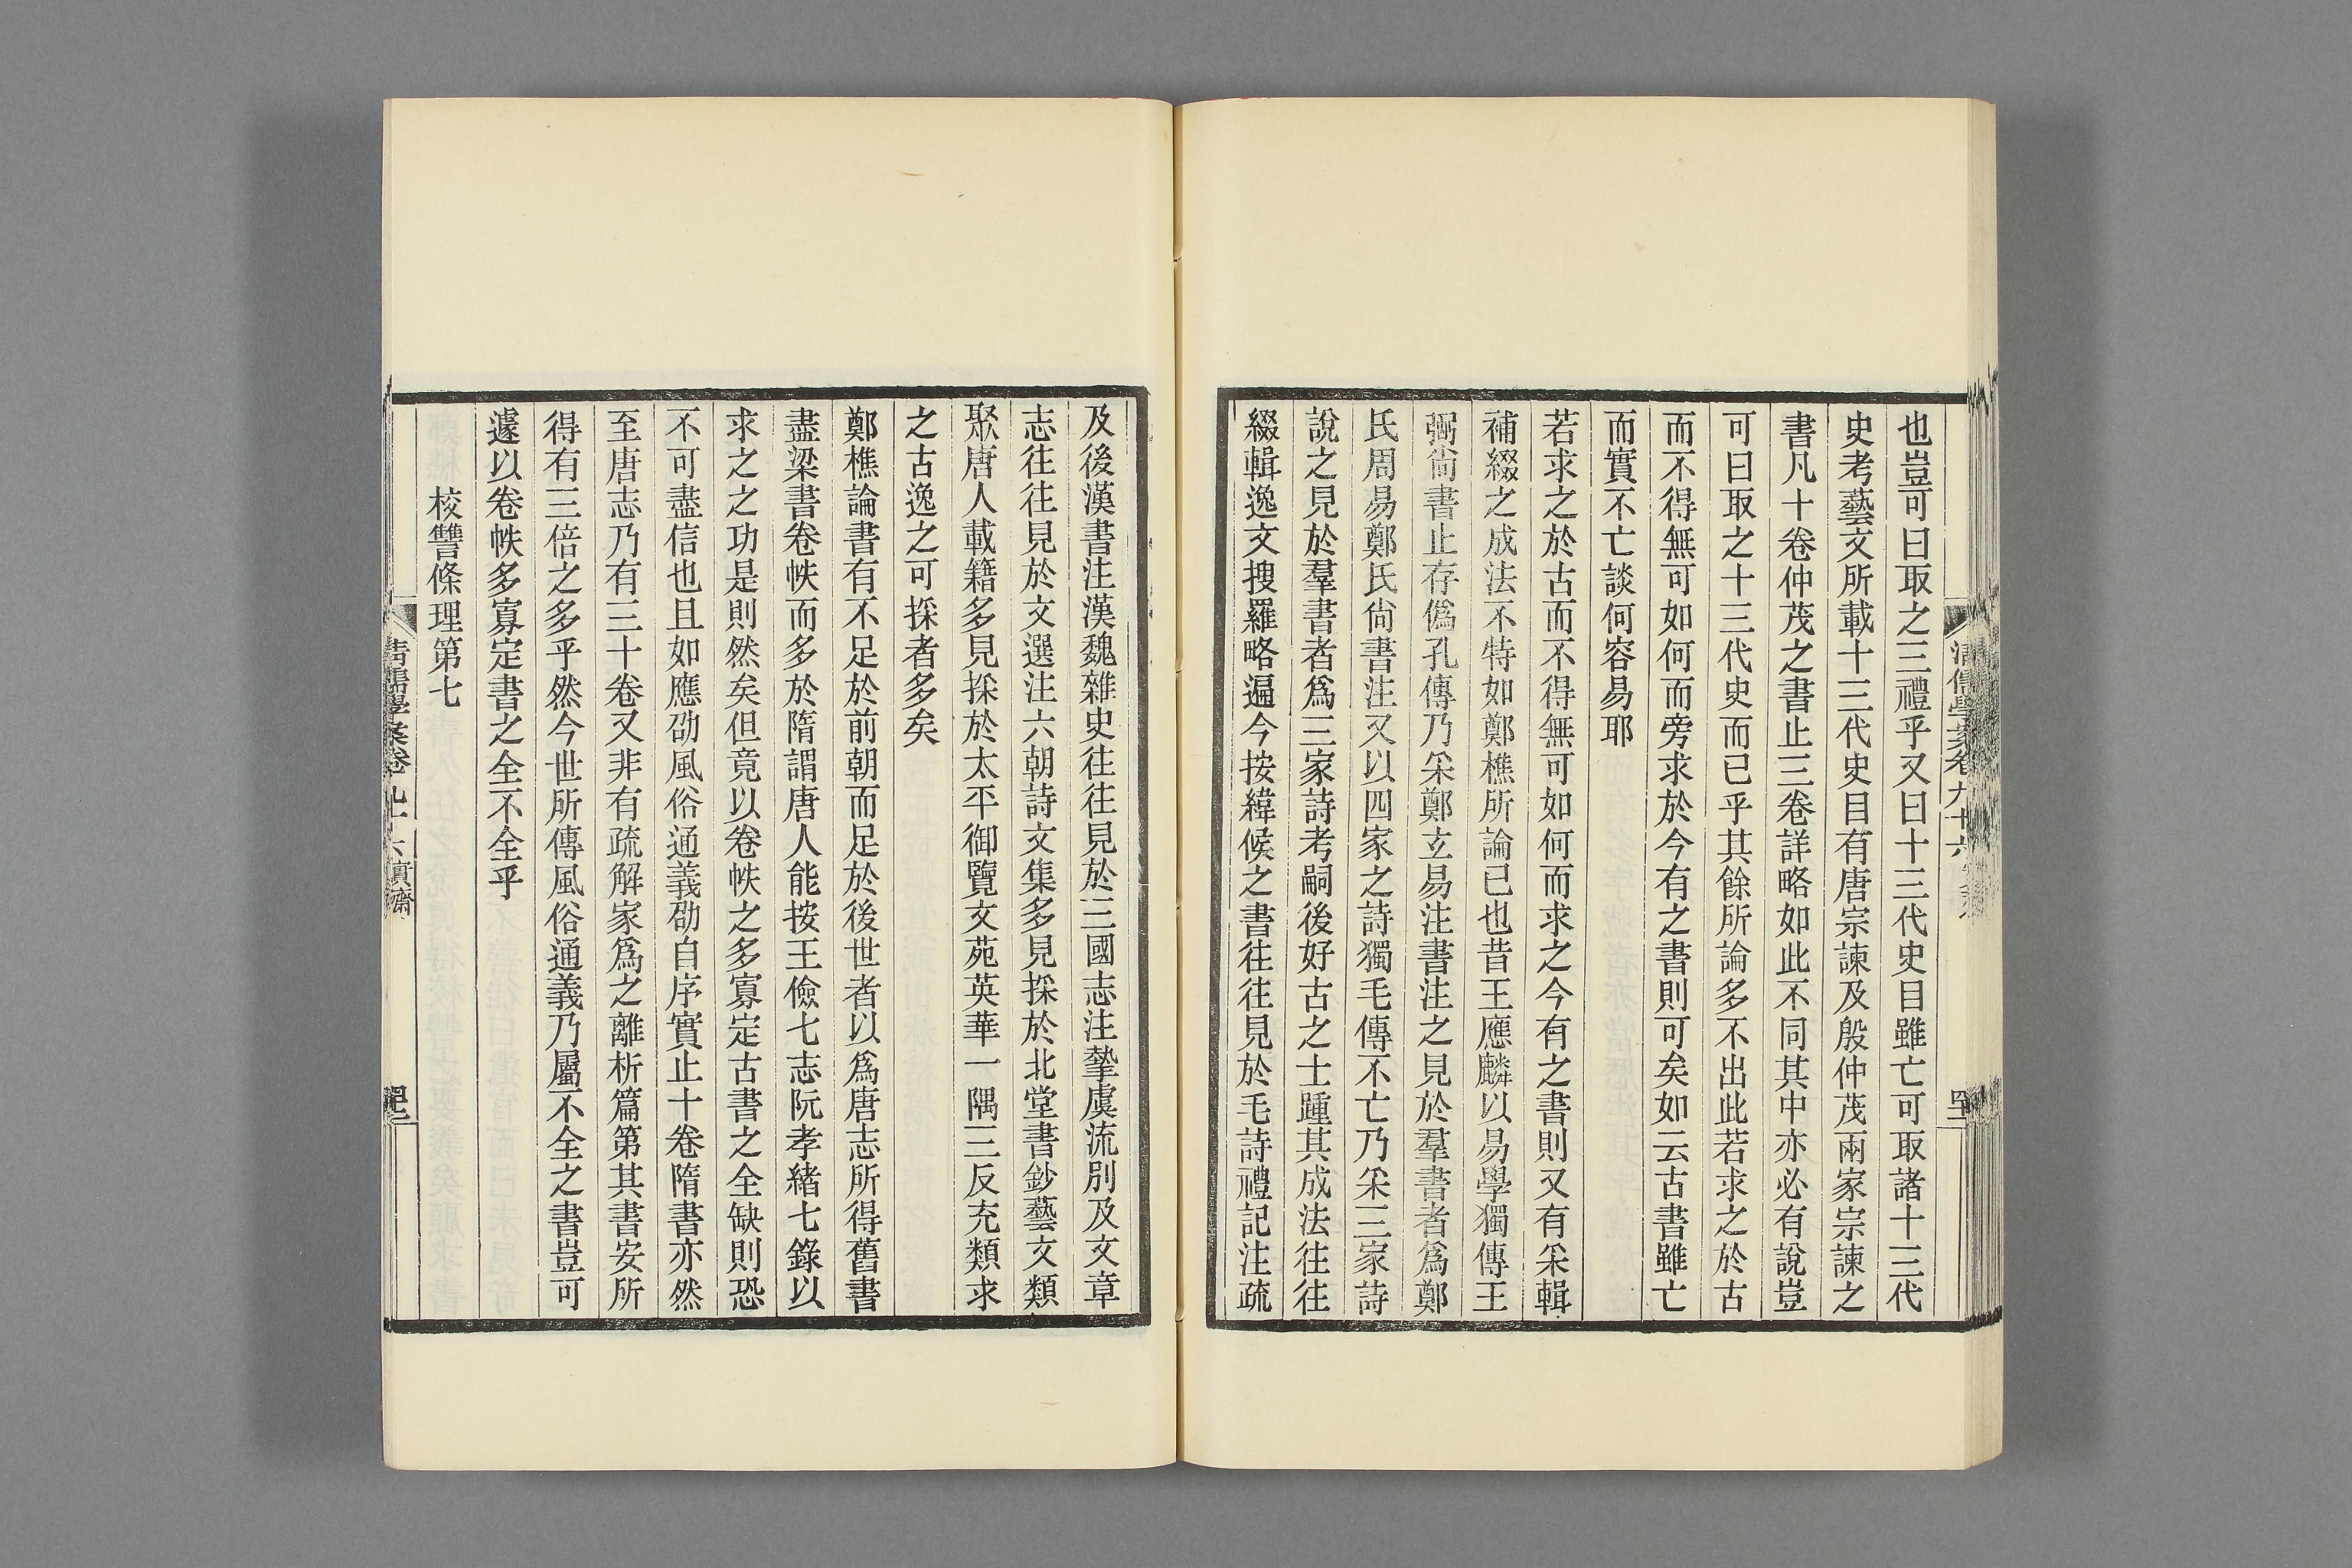 也豈可曰取之三禮乎又曰十三代史目雖亡可取諸十三代
史考藝文所載十三代史目有唐宗諫及殷仲茂兩家宗諫之
書凡十卷仲茂之書止三卷詳略如此不同其中亦必有說豈
可曰取之十三代史而已乎其餘所論多不出此若求之於古
而不得無可如何而旁求於今有之書則可矣如云古書雖亡
而實不亡談何容易耶
若求之於古而不得無可如何而求之今有之書則又有采輯
補綴之成法不特如鄭樵所論已也昔王應麟以易學獨傳王
弼尙書止存僞孔傳乃采鄭玄易注書注之見於羣書者爲鄭
氏周易鄭氏尙書注又以四家之詩獨毛傳不亡乃采三家詩
說之見於羣書者爲三家詩考嗣後好古之士踵其成法往往
綴輯逸文搜羅略遍今按緯候之書往往見於毛詩禮記注疏
及後漢書注漢魏雜史往往見於三國志注摯虞流別及文章
志往往見於文選注六朝詩文集多見採於北堂書鈔藝文類
聚唐人載籍多見採於太平御覽文苑英華一隅三反充類求
之古逸之可採者多矣
鄭樵論書有不足於前朝而足於後世者以爲唐志所得舊書
盡梁書卷帙而多於隋謂唐人能按王儉七志阮孝緒七錄以
求之之功是則然矣但竟以卷帙之多寡定古書之全缺則恐
不可盡信也且如應劭風俗通義劭自序實止十卷隋書亦然
至唐志乃有三十卷又非有疏解家爲之離析篇第其書安所
得有三倍之多乎然今世所傳風俗通義乃屬不全之書豈可
遽以卷帙多寡定書之全不全乎
校讐條理第七